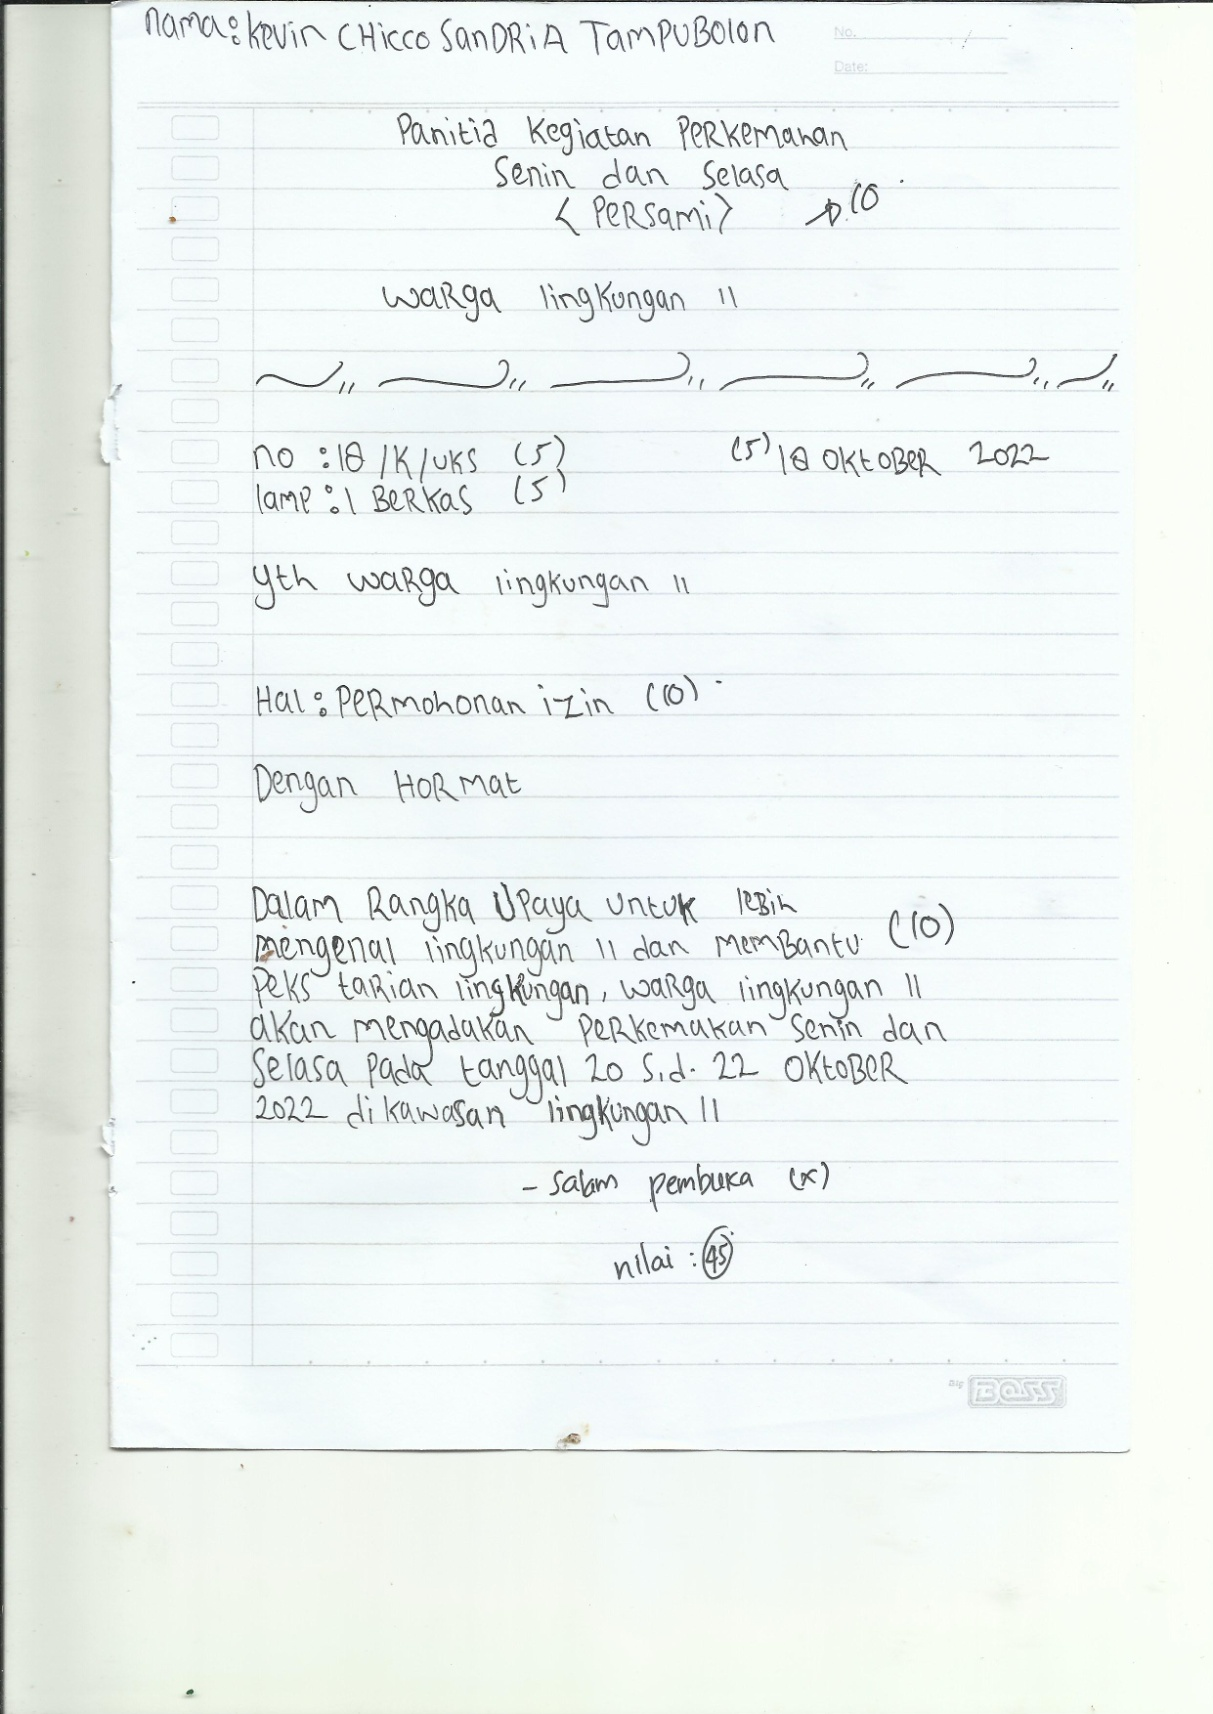 nama: Kevin CHicco SanDRiA TamPUBolon
No.
Date:
Panitia Kegiatan PERKemahan
Senin dan Selasa
< PERSami > → 10
waRga lingkungan II
no : 18 /K/UKS (5) (5) 18 OKtoBER 2022
lamp : 1 BerKas (5)
Yth waRga lingkungan II
Hal : PERmohonan izin (10)
Dengan HoRmat
Dalam Rangka UPaya untuk leBih
mengenal lingkungan II dan memBantu (10)
Peks taRian lingkungan, waRga lingkungan II
akan mengadakan PeRkemakan Senin dan
Selasa Pada tanggal 20 s.d. 22 OKtoBER
2022 di kawasan lingkungan II
- Salam pembuka (x)
nilai : 45
Big BOSS